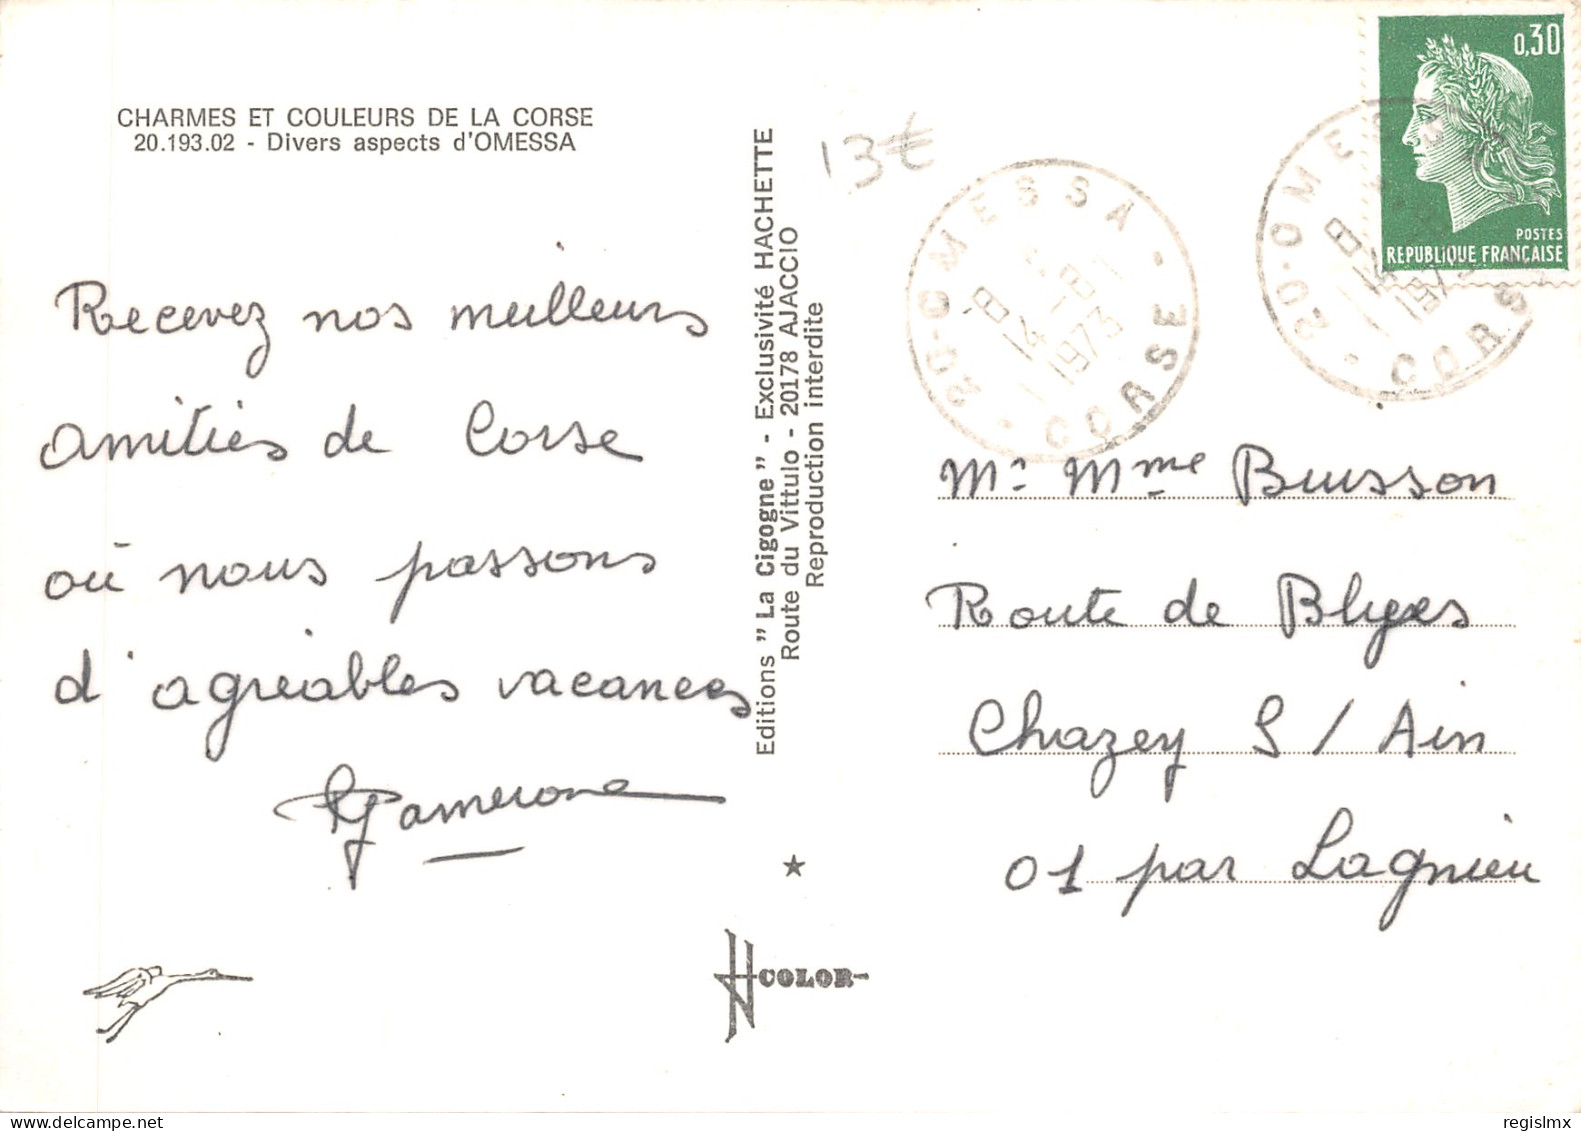 CHARMES ET COULEURS DE LA CORSE
20.193.02 - Divers aspects d'OMESSA
Recevez nos meilleurs
amitiés de Corse
où nous passons
d'agréables vacances
Editions "La Cigogne" - Exclusivité HACHETTE
Route du Vittulo - 20178 AJACCIO
Reproduction interdite
COLOR
13€
20-OMESSA
8 H
14 - 8
1973
CORSE
20-OMESSA
8 H
1973
CORSE
0,30
POSTES
REPUBLIQUE FRANÇAISE
Mr Mme Buisson
Route de Blyes
Chazey S/Ain
01 par Lagnieu
delcampe.net
regislmx